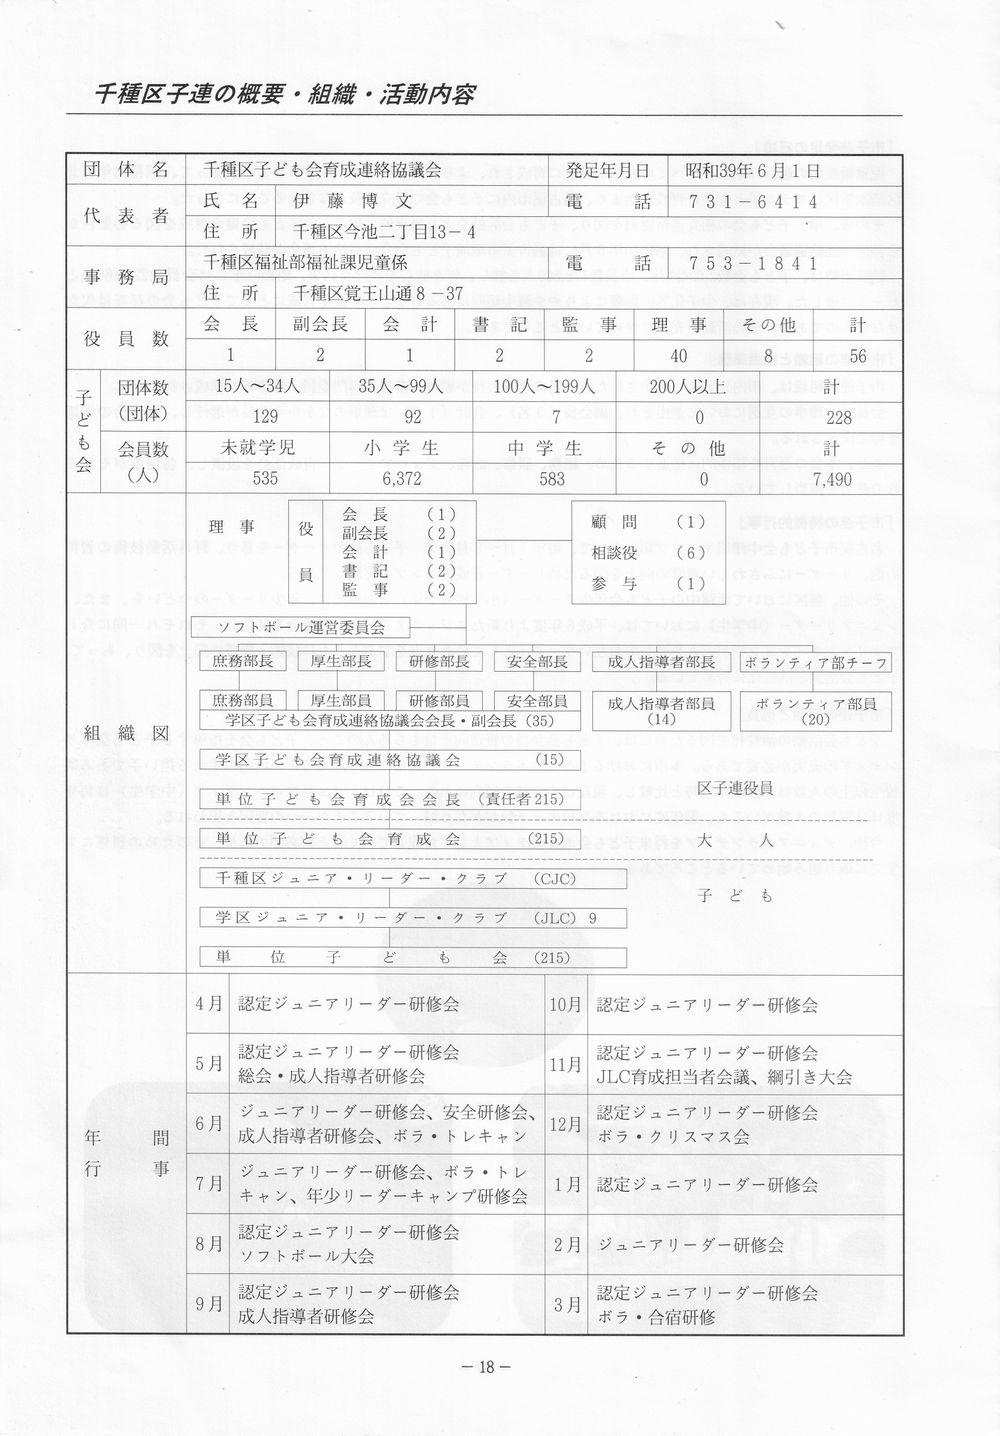 千種区子連の概要・組織・活動内容
団体名 千種区子ども会育成連絡協議会 発足年月日 昭和39年6月1日
代表者 氏名 伊藤博文 電話 731-6414
住所 千種区今池二丁目13-4
事務局 千種区福祉部福祉課児童係 電話 753-1841
住所 千種区覚王山通8-37
役員数 会長 副会長 会計 書記 監事 理事 その他 計
1 2 1 2 2 40 8 56
子ども会 団体数(団体) 15人~34人 35人~99人 100人~199人 200人以上 計
129 92 7 0 228
会員数(人) 未就学児 小学生 中学生 その他 計
535 6,372 583 0 7,490
組織図
理事 役員
会長 (1)
副会長 (2)
会計 (1)
書記 (2)
監事 (2)
顧問 (1)
相談役 (6)
参与 (1)
ソフトボール運営委員会
庶務部長 厚生部長 研修部長 安全部長 成人指導者部長 ボランティア部チーフ
庶務部員 厚生部員 研修部員 安全部員 成人指導者部員(14) ボランティア部員(20)
学区子ども会育成連絡協議会会長・副会長(35)
学区子ども会育成連絡協議会 (15)
区子連役員
単位子ども会育成会会長(責任者215)
単位子ども会育成会 (215)
大人
千種区ジュニア・リーダー・クラブ (CJC)
子ども
学区ジュニア・リーダー・クラブ (JLC)9
単位子ども会 (215)
年間行事
4月 認定ジュニアリーダー研修会
5月 認定ジュニアリーダー研修会
総会・成人指導者研修会
6月 ジュニアリーダー研修会、安全研修会、
成人指導者研修会、ボラ・トレキャン
7月 ジュニアリーダー研修会、ボラ・トレ
キャン、年少リーダーキャンプ研修会
8月 認定ジュニアリーダー研修会
ソフトボール大会
9月 認定ジュニアリーダー研修会
成人指導者研修会
10月 認定ジュニアリーダー研修会
11月 認定ジュニアリーダー研修会
JLC育成担当者会議、綱引き大会
12月 認定ジュニアリーダー研修会
ボラ・クリスマス会
1月 認定ジュニアリーダー研修会
2月 ジュニアリーダー研修会
3月 認定ジュニアリーダー研修会
ボラ・合宿研修
-18-